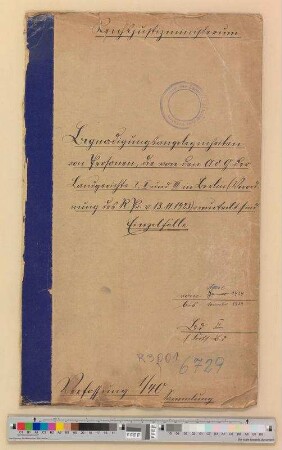 Reichsjustizministerium
Begnadigungsangelegenheiten
von Personen, die von den A o G der
Landgerichte I, II und III in Berlin (Verord-
nung des R Ps. v. 13.11.1923) verurteilt sind
Einzelfälle
vom 1924
bis
Bd. II
R 3001
6729
Verfassung 1/40
Sammlung